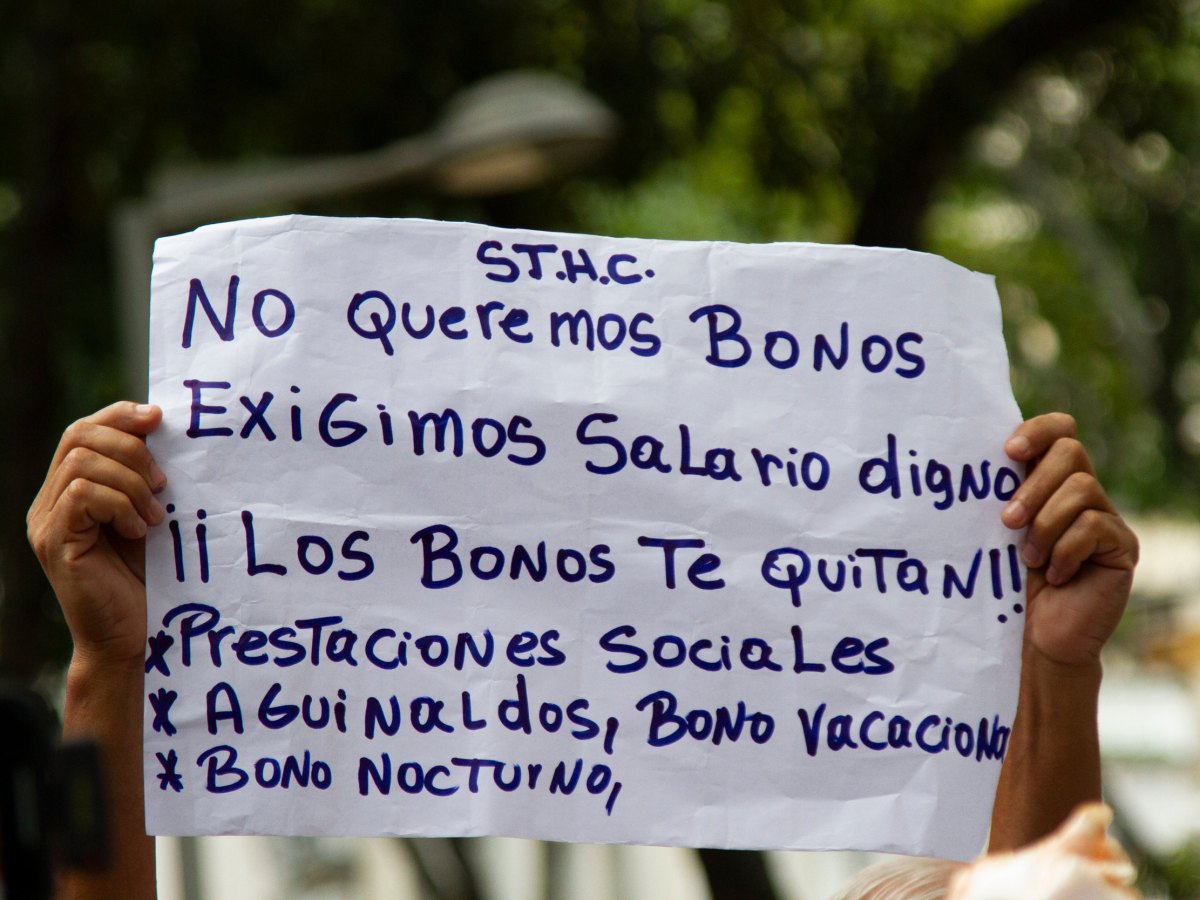 S.T.H.C.
No Queremos Bonos
Exigimos Salario digno
¡¡Los Bonos Te Quitan!!
*Prestaciones Sociales
* Aguinaldos, Bono Vacaciona
* Bono Nocturno,